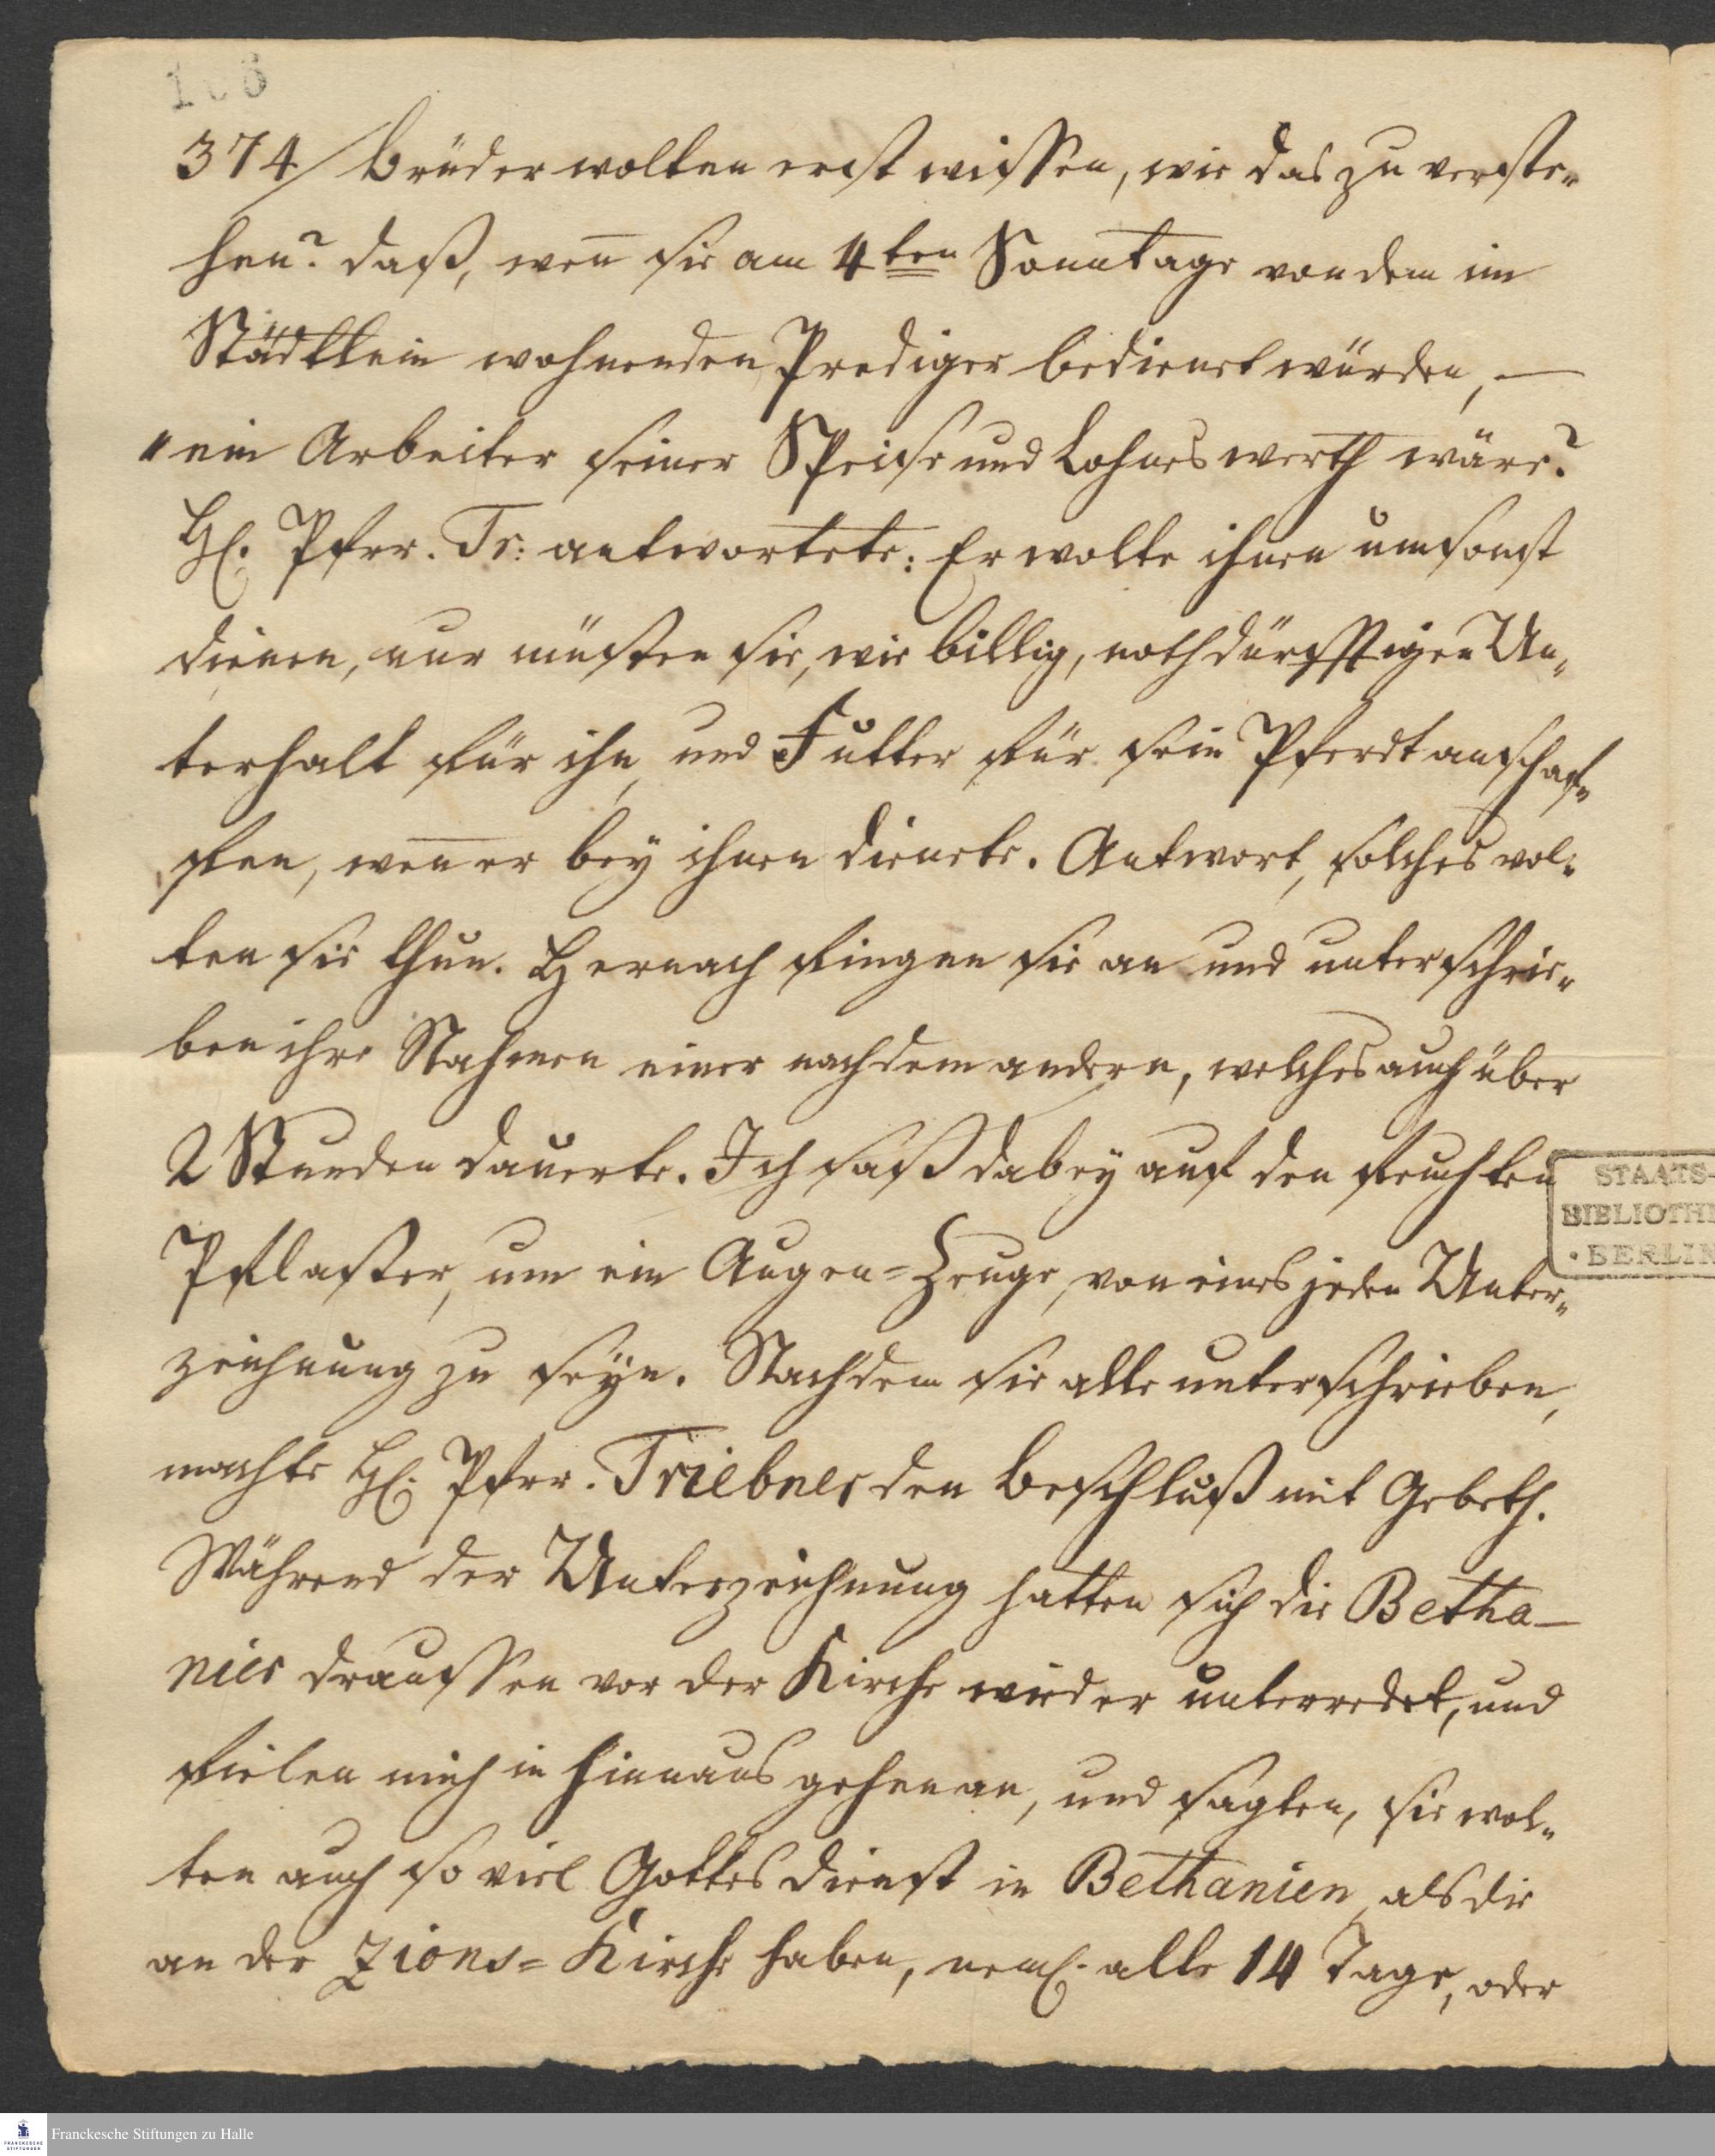 166
374/ Brüder wolten erst wissen, wie das zu verste-
hen? daß, wen̄ sie am 4ten Sonntage von dem im
Städtlein wohnenden Prediger bedienet würden, —
"ein Arbeiter seiner Speise und Lohnes werth wäre?
H. Pfarr. Tr: antwortete: Er wolte ihnen umsonst
dienen, nur müsten sie, wie billig, nothdürfftigen Un-
terhalt für ihn, und Futter für sein Pferdt anschaf-
fen, wen̄ er bey ihnen dienete. Antwort, solches wol-
ten sie thun. Hernach fingen sie an und unterschrie-
ben ihre Nahmen einer nach dem andern, welches auch über
2 Stunden dauerte. Ich saß dabey auf den feuchten
Pflaster, um ein Augen-Zeuge, von eines jeden Unter-
zeichnung zu seyn. Nachdem sie alle unterschrieben,
machte H. Pfarr. Triebner den Beschluß mit Gebeth.
Während der Unterzeichnung hatten sich die Betha-
nier draussen vor der Kirche wieder unterredet, und
fielen mich in hinnaus gehen an, und sagten, sie wol-
ten auch so viel Gottesdienst in Bethanien, als die
an der Zions-Kirche haben, neml. alle 14 Tage, oder
STAATS-
BIBLIOTHE
• BERLIN
FRANCKESCHE
STIFTUNGEN
Franckesche Stiftungen zu Halle